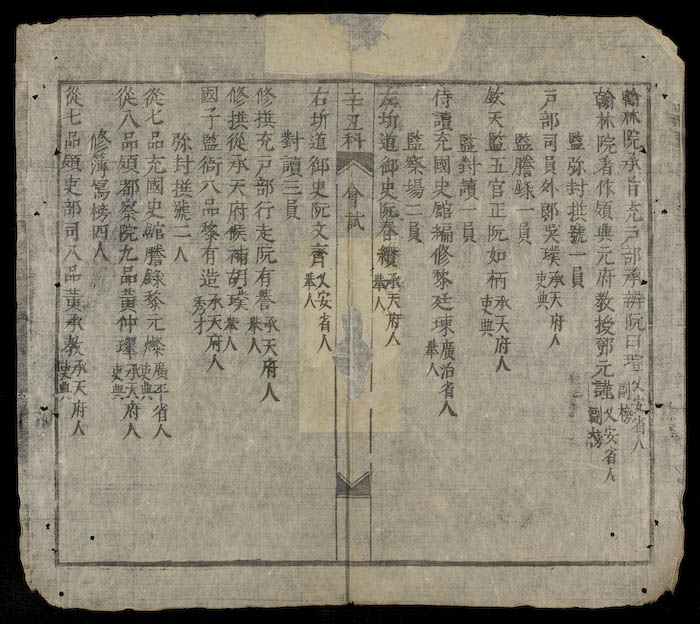 翰林院承旨充戸部承辦阮曰瑄 乂安省人 副榜
翰林院着作領興元府教授鄧元謹 乂安省人 副榜
監弥封撰號一員
戸部司員外郎吳璞 承天府人 吏典
監謄錄一員
欽天監五官正阮如柄 承天府人 吏典
監對讀一員
侍讀充國史館編修黎廷 廣治省人 舉人
監察場二員
左圻道御史阮春 承天府人 舉人
辛丑科 會試
右圻道御史阮文 乂安省人 舉人
對讀三員
修撰充戸部行走阮有譽 承天府人 舉人
修撰從承天府候補胡璞 承天府人 舉人
國子監銜八品黎有造 承天府人 秀才
弥封撰號二人
從七品充國史館謄錄黎元燦 廣平省人 吏典
從八品領都察院九品黃仲 承天府人 吏典
修簿寫榜四人
從七品領吏部司八品黃承 承天府人 吏典